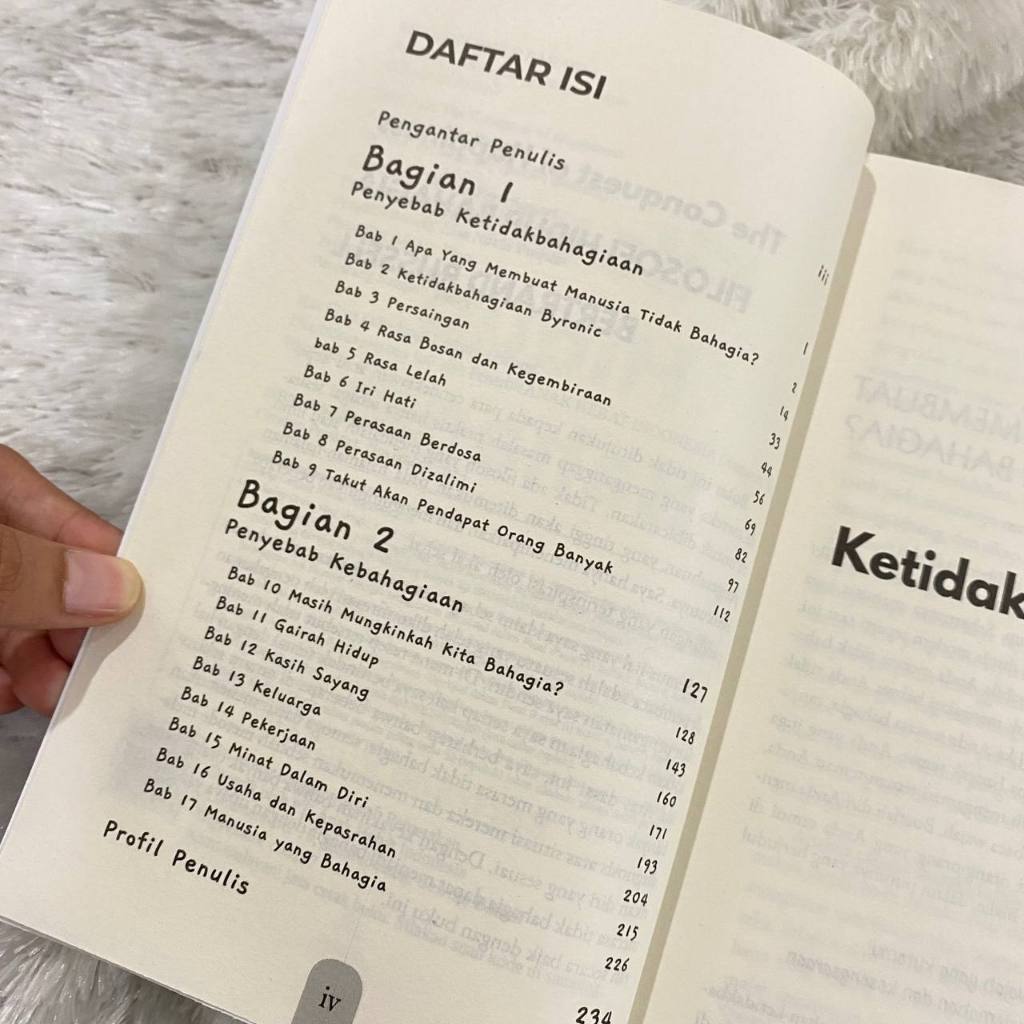 DAFTAR ISI
Pengantar Penulis iii
Bagian 1
Penyebab Ketidakbahagiaan 1
Bab 1 Apa Yang Membuat Manusia Tidak Bahagia? 2
Bab 2 Ketidakbahagiaan Byronic 14
Bab 3 Persaingan 33
Bab 4 Rasa Bosan dan Kegembiraan 44
bab 5 Rasa Lelah 56
Bab 6 Iri Hati 69
Bab 7 Perasaan Berdosa 82
Bab 8 Perasaan Dizalimi 97
Bab 9 Takut Akan Pendapat Orang Banyak 112
Bagian 2
Penyebab Kebahagiaan 127
Bab 10 Masih Mungkinkah Kita Bahagia? 128
Bab 11 Gairah Hidup 143
Bab 12 Kasih Sayang 160
Bab 13 Keluarga 171
Bab 14 Pekerjaan 193
Bab 15 Minat Dalam Diri 204
Bab 16 Usaha dan Kepasrahan 215
Bab 17 Manusia yang Bahagia 226
Profil Penulis 234
iv
Ketidak